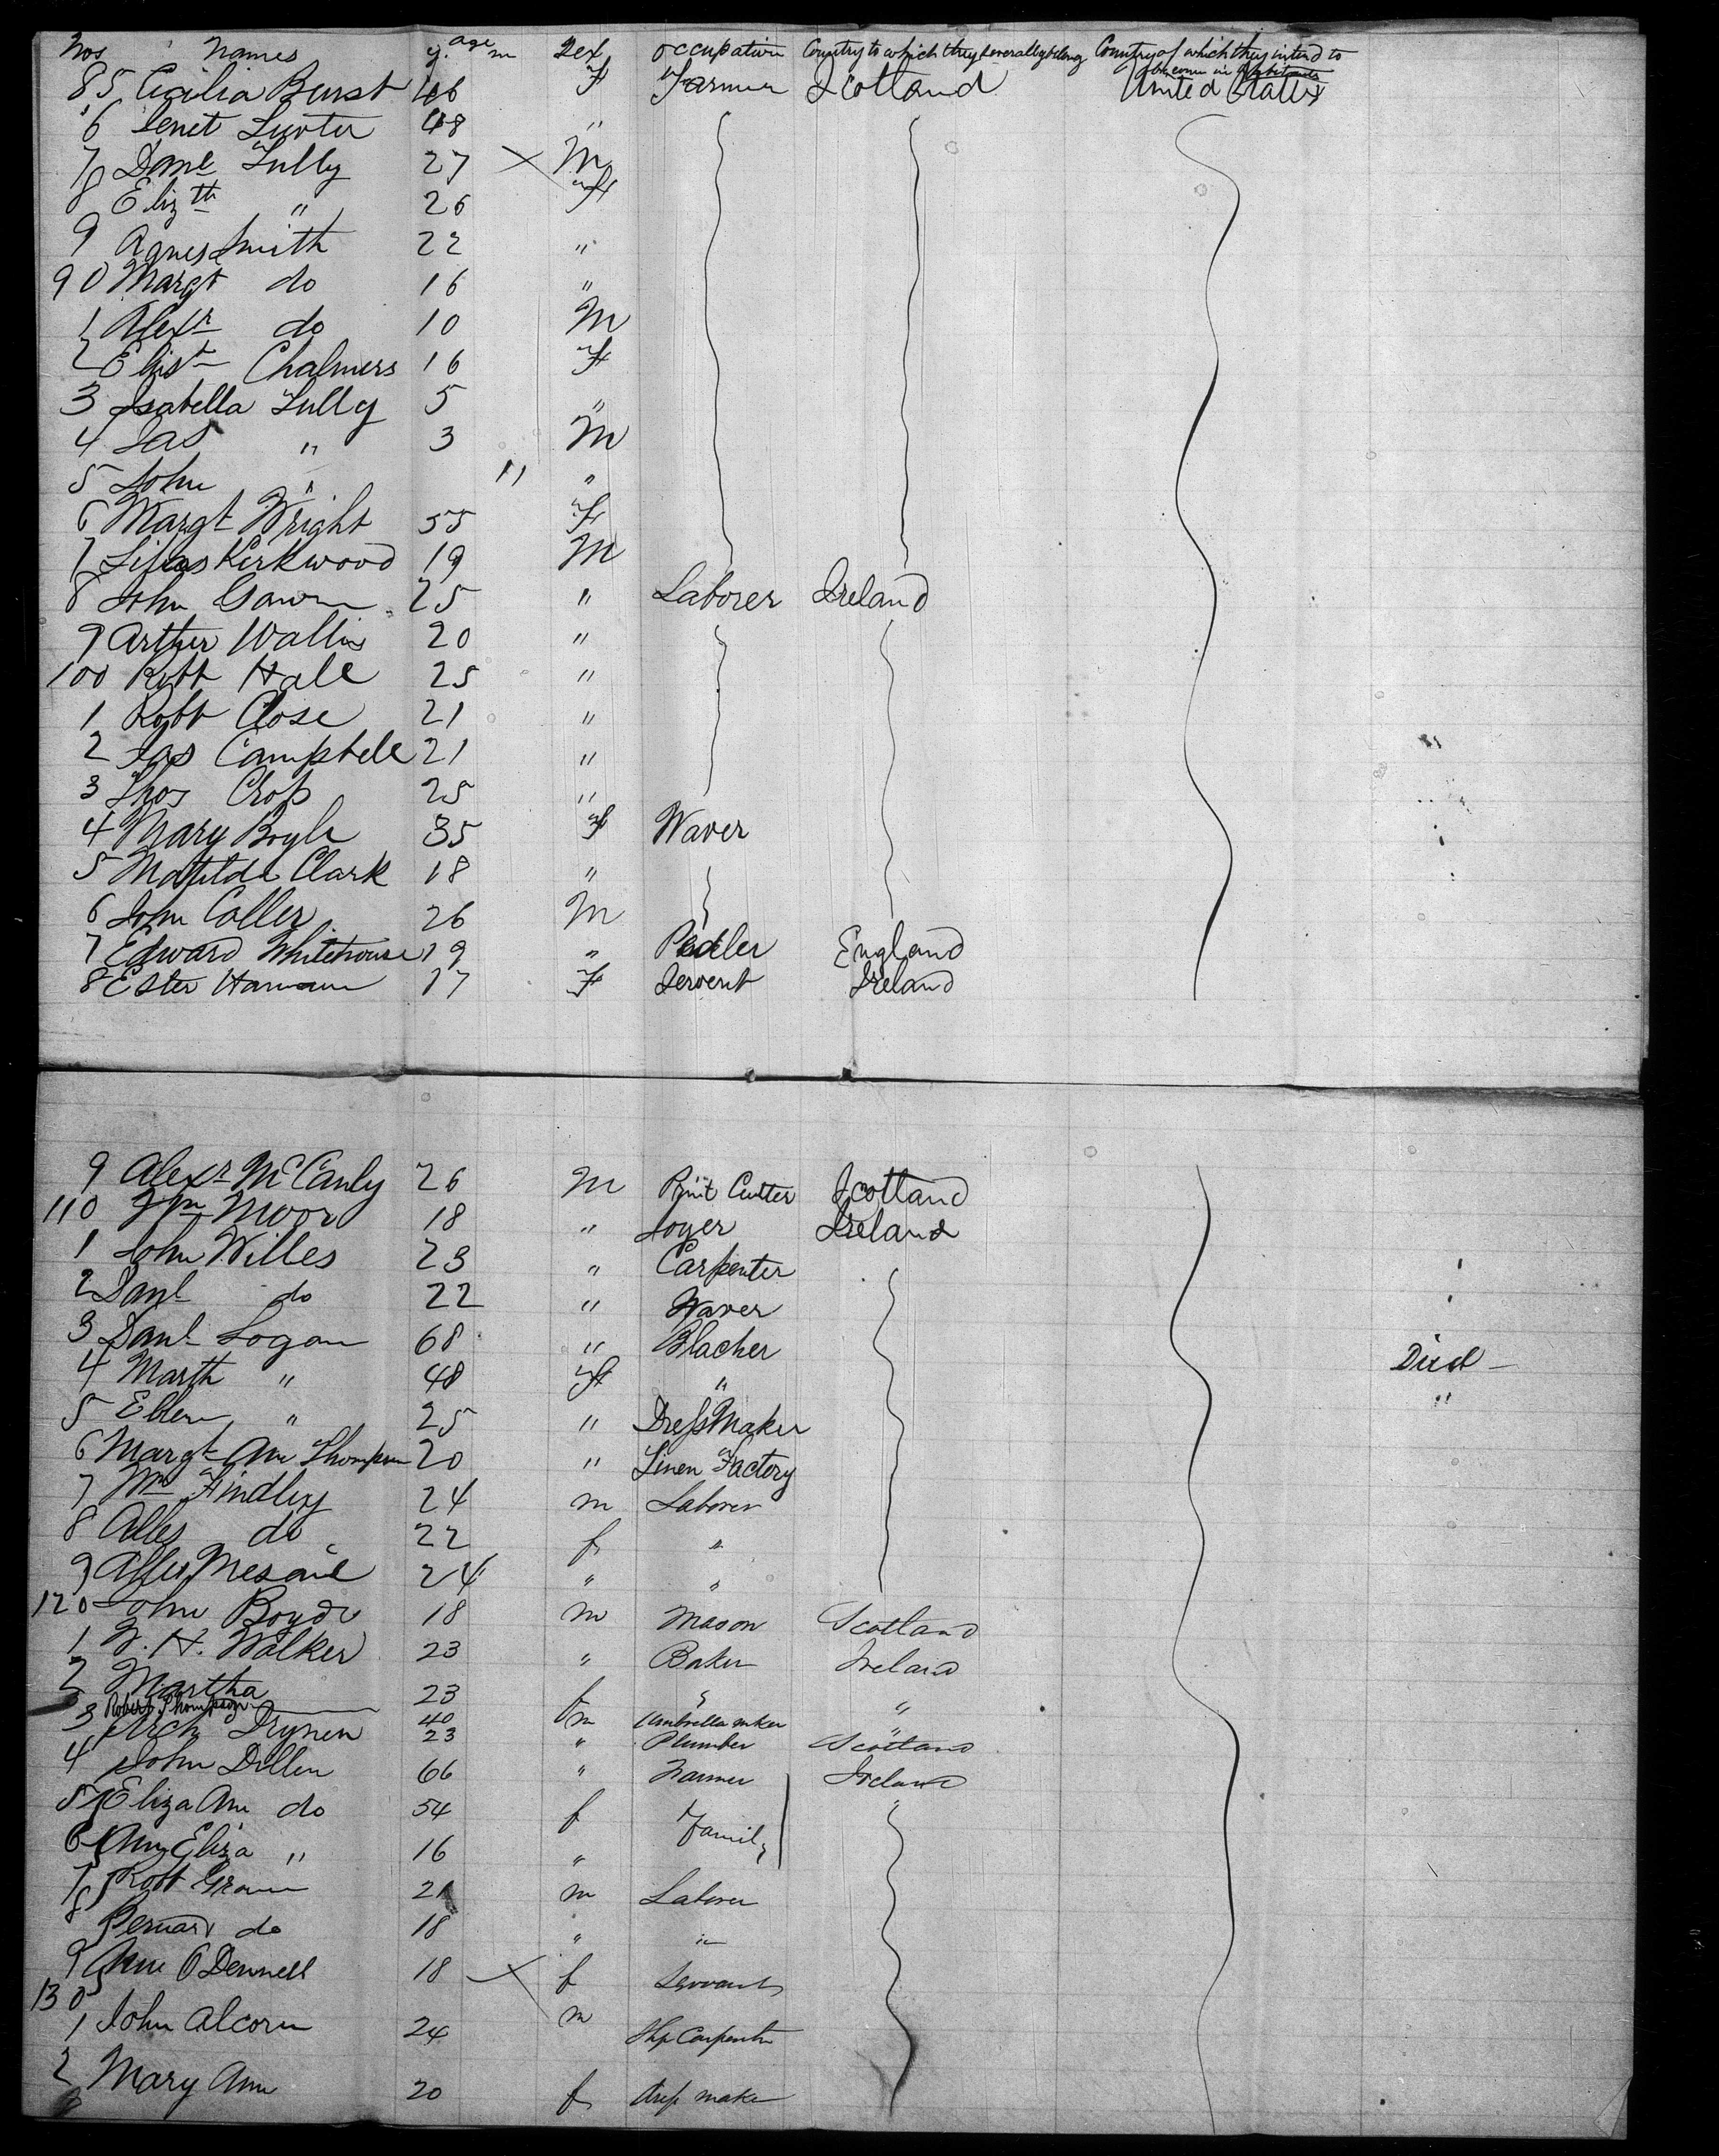 Nos Names age y. m Sex occupation Country to which they severally belong Country of which they intend to become inhabitants
85 Cicilia Burst 46 F Farmer Scotland United States
6 Jenet 48 "
7 Danl Lully 27 M
8 Elizth " 26 F
9 Agnes Smith 22 "
90 Margt do 16 "
1 Alexr do 10 M
2 Elist Chalmers 16 F
3 Isabella Lully 5 "
4 Jas " 3 M
5 John " 11 "
6 Margt Wright 55 F
7 Silas Kirkwood 19 M
8 John 25 " Laborer Ireland
9 Arther Wallis 20 "
100 Robt Hall 25 "
1 Robt Close 21 "
2 Jas Campbell 21 "
3 Thos 25 "
4 Mary Boyle 35 F Waver
5 Matilda Clark 18 "
6 John Coller 26 M
7 Edward Whitehouse 19 " Pedler England
8 Ester 17 F Servent Ireland
9 Alexr McCanly 26 M Print Cutter Scotland
110 Wm Moor 18 " Ireland
1 John Willes 23 " Carpenter
2 Danl do 22 " Waver
3 Danl Logan 68 " Blacher Died
4 Marth " 48 F " "
5 Ellen " 25 " Dress Maker
6 Margt Ann Thompson 20 " Linen Factory
7 Findley 24 m Laborer
8 do 22 f "
9 24 " "
120 John Boyde 18 m Mason Scotland
1 W. H. Walker 23 " Baker Ireland
2 Martha 23 f "
Robert Thompson 40 m Umbrella mker "
3 Arch Drynen 23 " Plumber Scotland
4 John Dillen 66 " Farmer Ireland
5 Eliza Ann do 54 f Family "
6 Eliza " 16 "
7 Robt 21 m Laborer
8 Bernard do 18 " "
9 Ann O Donnell 18 f Servant
130 m
1 John Alcorn 24 Shp Carpenter
2 Mary Ann 20 f dress maker